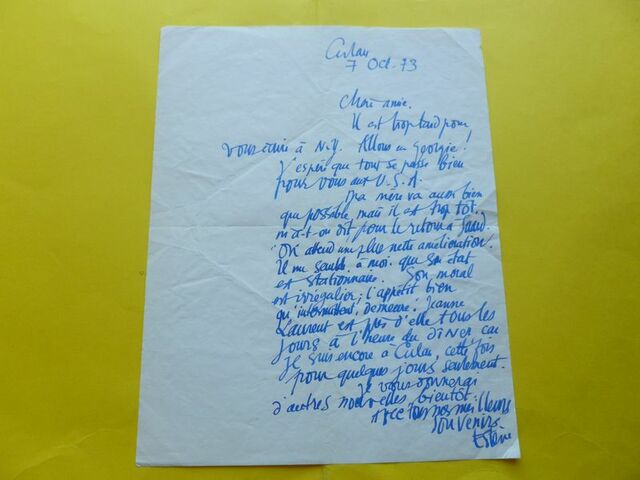 Culan
7 Oct. 73
Chère amie.
Il est trop tard pour
vous écrire à N.Y. Allons en Georgie!
J'espère que tout se passe bien
pour vous aux U.S.A.
Ma mère va aussi bien
que possible, mais il est trop tôt
m'a-t-on dit pour le retour à
"OK attend une plus nette amélioration".
Il me semble à moi que son état
est stationnaire. Son moral
est irrégulier; l'appétit bien
qu'intermittent, demeure. Jeanne
Laurent est près d'elle tous les
jours à l'heure du dîner car
je suis encore à Culan, cette fois
pour quelques jours seulement.
Je vous donnerai
d'autres nouvelles bientôt.
Avec tous nos meilleurs
souvenirs
Estève